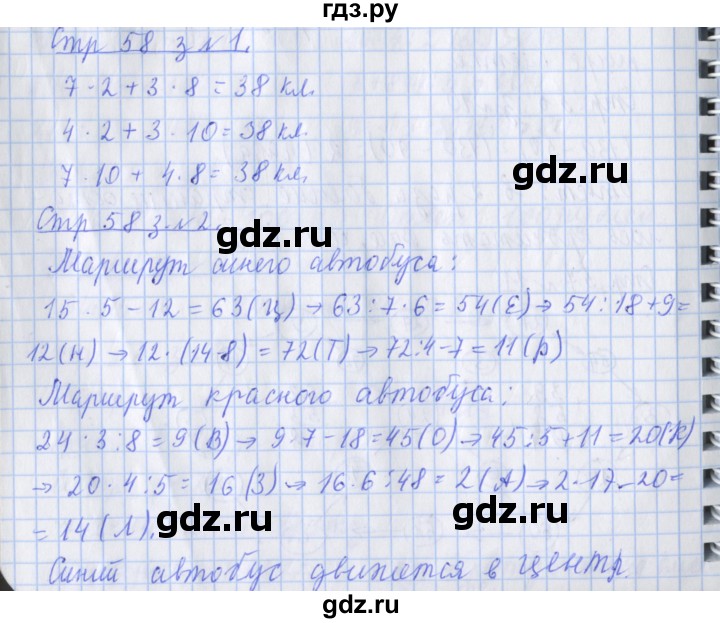 гдз.ру
Стр 58 з №1.
7·2+3·8=38 кл.
4·2+3·10=38 кл.
7·10+4·8=38 кл.
gdz.ru
Стр 58 з №2.
gdz.ru
Маршрут синего автобуса:
gdz.ru
15·5-12=63(Ц)→63:7·6=54(Е)→54:18+9=
12(Н)→12·(14-8)=72(Т)→72:4-7=11(Р)
Маршрут красного автобуса:
gdz.ru
24·3:8=9(В)→9·7-18=45(О)→45:5+11=20(К)
→20·4:5=16(З)→16·6:48=2(А)→2·17-20=
=14(Л).
gdz.ru
gdz.ru
Синий автобус движется в центр.
gdz.ru